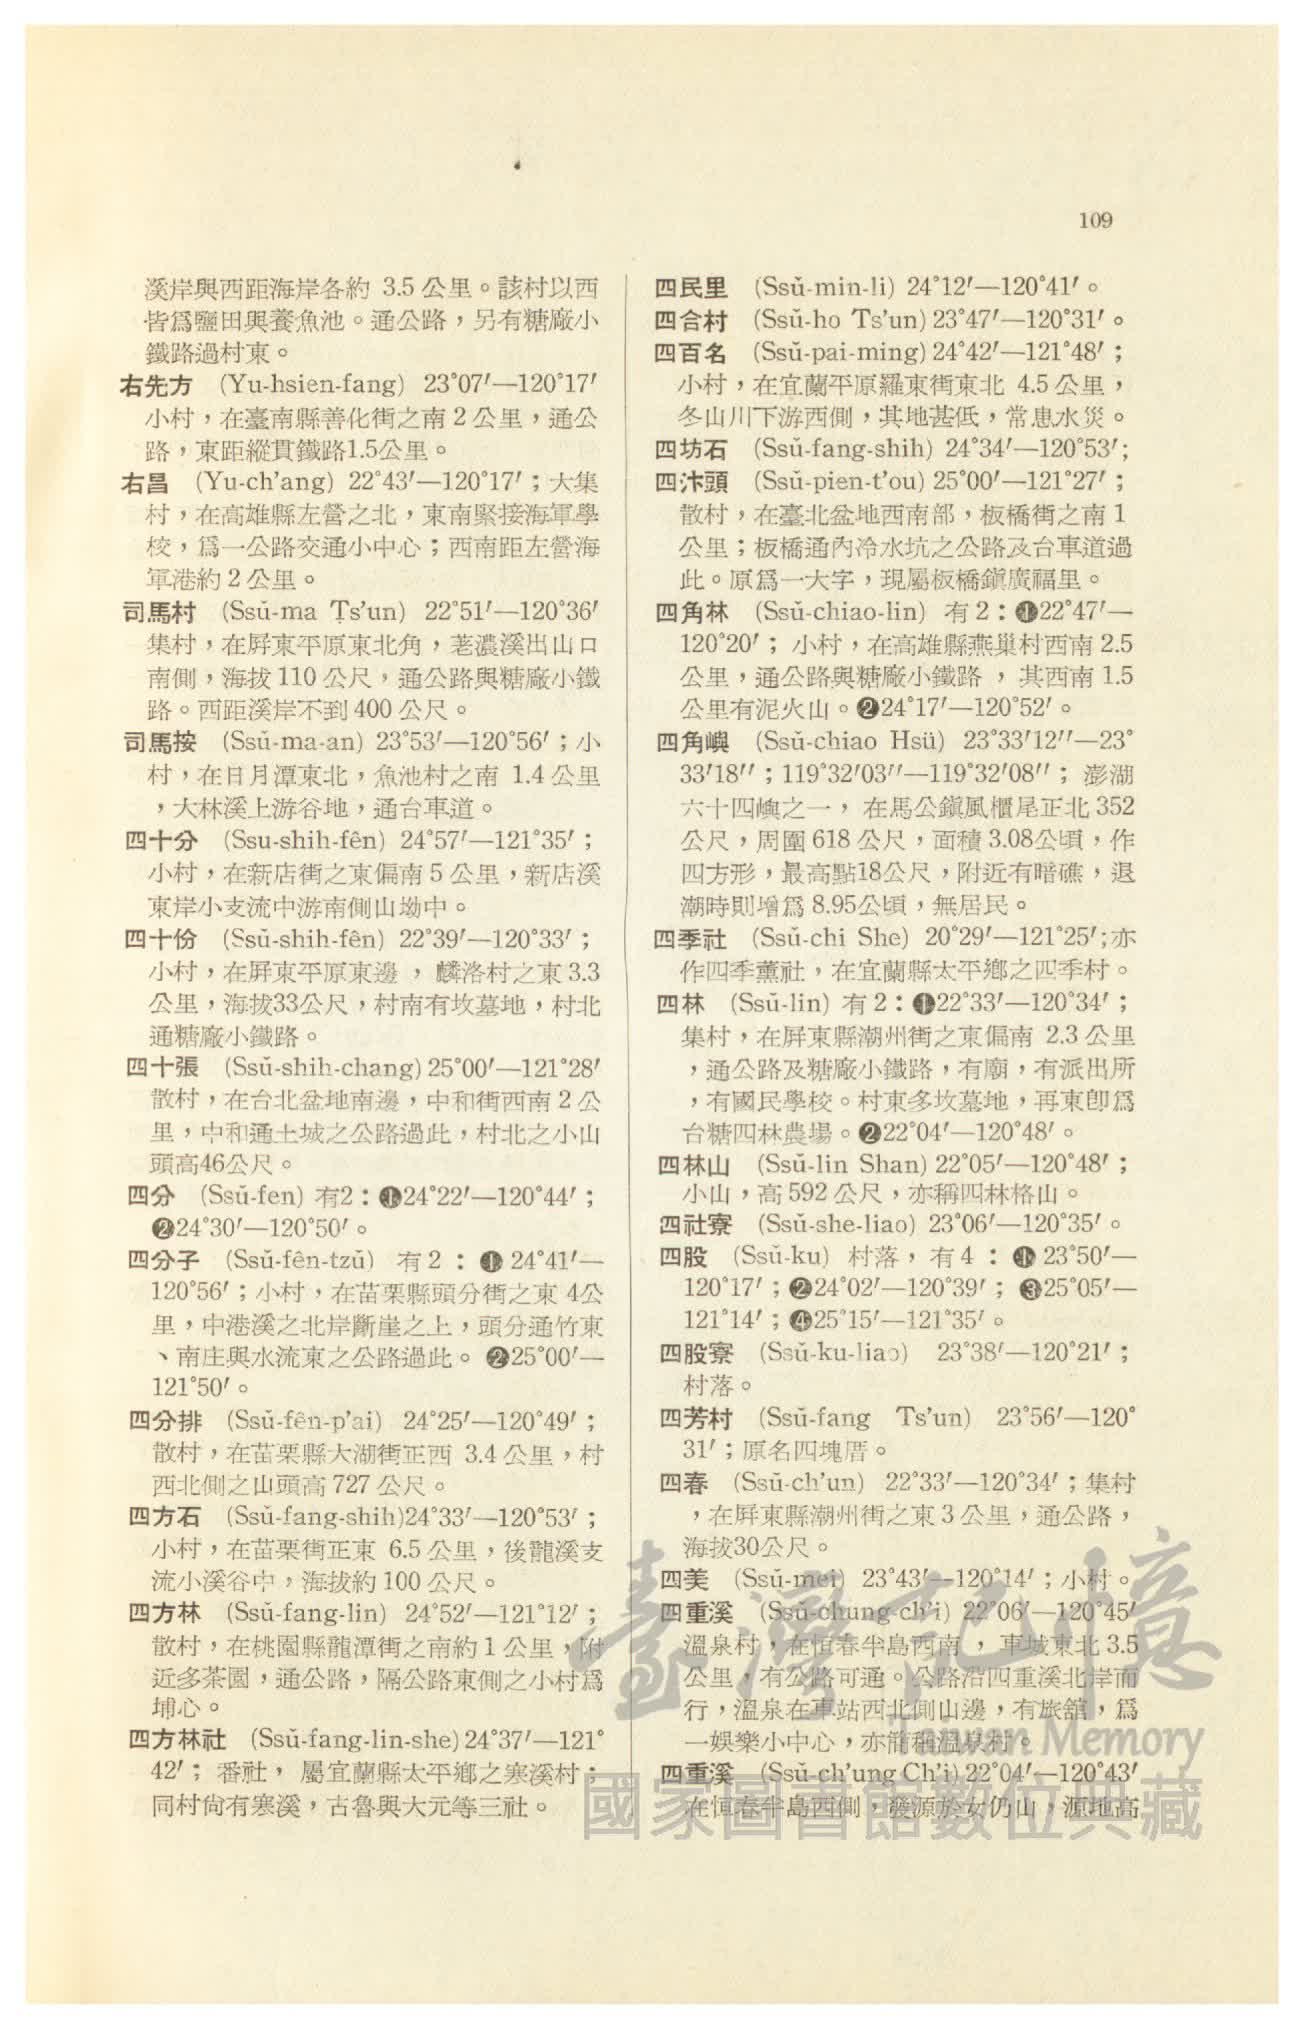 109
溪岸與西距海岸各約 3.5公里。該村以西
皆爲鹽田與養魚池。通公路，另有糖廠小
鐵路過村東。
右先方 (Yu-hsien-fang) 23°07′—120°17′
小村，在臺南縣善化街之南2公里，通公
路，東距縱貫鐵路1.5公里。
右昌 (Yu-ch'ang) 22°43′—120°17′；大集
村，在高雄縣左營之北，東南緊接海軍學
校，爲一公路交通小中心；西南距左營海
軍港約2公里。
司馬村 (Ssŭ-ma Ts'un) 22°51′—120°36′
集村，在屛東平原東北角，荖濃溪出山口
南側，海拔110公尺，通公路與糖廠小鐵
路。西距溪岸不到400公尺。
司馬按 (Ssŭ-ma-an) 23°53′—120°56′；小
村，在日月潭東北，魚池村之南 1.4公里
，大林溪上游谷地，通台車道。
四十分 (Ssu-shih-fên) 24°57′—121°35′；
小村，在新店街之東偏南5公里，新店溪
東岸小支流中游南側山坳中。
四十份 (Ssŭ-shih-fên) 22°39′—120°33′；
小村，在屛東平原東邊，麟洛村之東3.3
公里，海拔33公尺，村南有坟墓地，村北
通糖廠小鐵路。
四十張 (Ssŭ-shih-chang) 25°00′—121°28′
散村，在台北盆地南邊，中和街西南2公
里，中和通土城之公路過此，村北之小山
頭高46公尺。
四分 (Ssŭ-fen) 有2：❶24°22′—120°44′；
❷24°30′—120°50′。
四分子 (Ssŭ-fên-tzŭ) 有2：❶24°41′—
120°56′；小村，在苗栗縣頭分街之東 4公
里，中港溪之北岸斷崖之上，頭分通竹東
、南庄與水流東之公路過此。❷25°00′—
121°50′。
四分排 (Ssŭ-fên-p'ai) 24°25′—120°49′；
散村，在苗栗縣大湖街正西 3.4公里，村
西北側之山頭高727公尺。
四方石 (Ssŭ-fang-shih)24°33′—120°53′；
小村，在苗栗街正東 6.5公里，後龍溪支
流小溪谷中，海拔約100公尺。
四方林 (Ssŭ-fang-lin) 24°52′—121°12′；
散村，在桃園縣龍潭街之南約1公里，附
近多茶園，通公路，隔公路東側之小村爲
埔心。
四方林社 (Ssŭ-fang-lin-she)24°37′—121°
42′；番社，屬宜蘭縣太平鄉之寒溪村；
同村尙有寒溪，古魯與大元等三社。
四民里 (Ssŭ-min-li) 24°12′—120°41′。
四合村 (Ssŭ-ho Ts'un) 23°47′—120°31′。
四百名 (Ssŭ-pai-ming) 24°42′—121°48′；
小村，在宜蘭平原羅東街東北 4.5公里，
冬山川下游西側，其地甚低，常患水災。
四坊石 (Ssŭ-fang-shih) 24°34′—120°53′;
四汴頭 (Ssŭ-pien-t'ou) 25°00′—121°27′；
散村，在臺北盆地西南部，板橋街之南1
公里；板橋通內冷水坑之公路及台車道過
此。原爲一大字，現屬板橋鎭廣福里。
四角林 (Ssŭ-chiao-lin) 有2：❶22°47′—
120°20′；小村，在高雄縣燕巢村西南2.5
公里，通公路與糖廠小鐵路，其西南1.5
公里有泥火山。❷24°17′—120°52′。
四角嶼 (Ssŭ-chiao Hsü) 23°33′12″—23°
33′18″；119°32′03″—119°32′08″；澎湖
六十四嶼之一，在馬公鎭風櫃尾正北352
公尺，周圍618公尺，面積3.08公頃，作
四方形，最高點18公尺，附近有暗礁，退
潮時則增爲8.95公頃，無居民。
四季社 (Ssŭ-chi She) 20°29′—121°25′;亦
作四季薰社，在宜蘭縣太平鄉之四季村。
四林 (Ssŭ-lin) 有2：❶22°33′—120°34′；
集村，在屛東縣潮州街之東偏南 2.3公里
，通公路及糖廠小鐵路，有廟，有派出所
，有國民學校。村東多坟墓地，再東卽爲
台糖四林農場。❷22°04′—120°48′。
四林山 (Ssŭ-lin Shan) 22°05′—120°48′；
小山，高592公尺，亦稱四林格山。
四社寮 (Ssŭ-she-liao) 23°06′—120°35′。
四股 (Ssŭ-ku) 村落，有4：❶23°50′—
120°17′；❷24°02′—120°39′；❸25°05′—
121°14′；❹25°15′—121°35′。
四股寮 (Ssŭ-ku-liao) 23°38′—120°21′；
村落。
四芳村 (Ssŭ-fang Ts'un) 23°56′—120°
31′；原名四塊厝。
四春 (Ssŭ-ch'un) 22°33′—120°34′；集村
，在屛東縣潮州街之東3公里，通公路，
海拔30公尺。
四美 (Ssŭ-mei) 23°43′—120°14′；小村。
四重溪 (Ssŭ-chung-ch'i) 22°06′—120°45′
溫泉村，在恒春半島西南，車城東北3.5
公里，有公路可通。公路沿四重溪北岸而
行，溫泉在車站西北側山邊，有旅舘，爲
一娛樂小中心，亦簡稱溫泉村。
四重溪 (Ssŭ-ch'ung Ch'i) 22°04′—120°43′
在恒春半島西側，發源於女仍山，源地高
臺灣記憶
Taiwan Memory
國家圖書館數位典藏